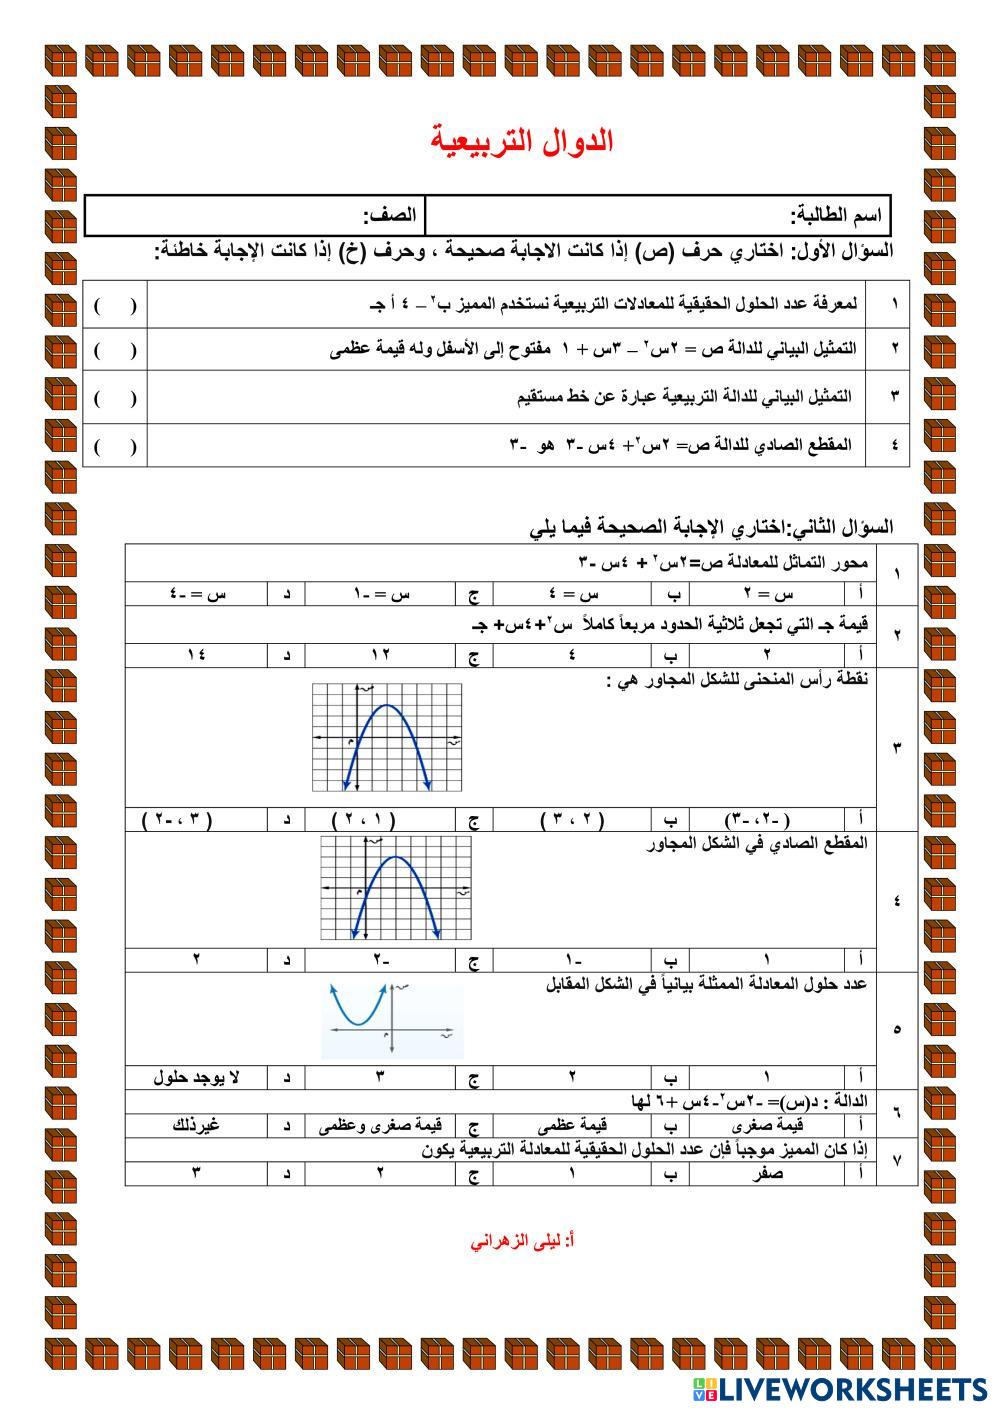 الدوال التربيعية
اسم الطالبة: الصف:
السؤال الأول: اختاري حرف (ص) إذا كانت الاجابة صحيحة ، وحرف (خ) إذا كانت الإجابة خاطئة:
١ لمعرفة عدد الحلول الحقيقية للمعادلات التربيعية نستخدم المميز ب٢ – ٤ أ جـ ( )
٢ التمثيل البياني للدالة ص = ٢س٢ – ٣س + ١ مفتوح إلى الأسفل وله قيمة عظمى ( )
٣ التمثيل البياني للدالة التربيعية عبارة عن خط مستقيم ( )
٤ المقطع الصادي للدالة ص= ٢س٢+ ٤س -٣ هو -٣ ( )
السؤال الثاني:اختاري الإجابة الصحيحة فيما يلي
١ محور التماثل للمعادلة ص=٢س٢ + ٤س -٣
أ س = ٢ ب س = ٤ ج س = -١ د س = -٤
٢ قيمة جـ التي تجعل ثلاثية الحدود مربعاً كاملاً س٢+٤س+ جـ
أ ٢ ب ٤ ج ١٢ د ١٤
٣ نقطة رأس المنحنى للشكل المجاور هي :
أ ( -٢، -٣) ب ( ٢ ، ٣ ) ج ( ١ ، ٢ ) د ( ٣ ، -٢ )
٤ المقطع الصادي في الشكل المجاور
أ ١ ب -١ ج -٢ د ٢
٥ عدد حلول المعادلة الممثلة بيانياً في الشكل المقابل
أ ١ ب ٢ ج ٣ د لا يوجد حلول
٦ الدالة : د(س)= -٢س٢-٤س +٦ لها
أ قيمة صغرى ب قيمة عظمى ج قيمة صغرى وعظمى د غيرذلك
٧ إذا كان المميز موجباً فإن عدد الحلول الحقيقية للمعادلة التربيعية يكون
أ صفر ب ١ ج ٢ د ٣
أ: ليلى الزهراني
LIVEWORKSHEETS